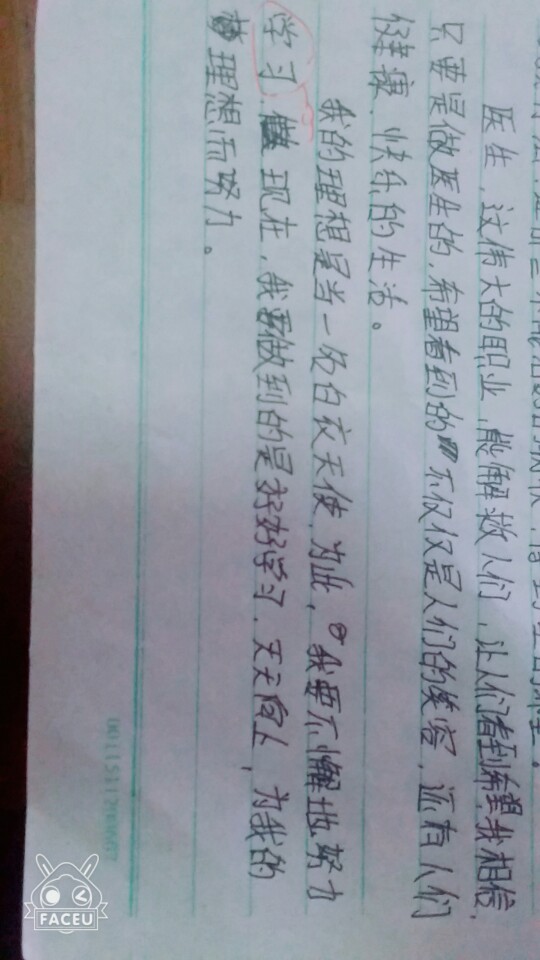 医生,这伟大的职业,能解救人们,让人们看到希望,我相信,
只要是做医生的,希望看到的不仅仅是人们的笑容,还有人们
健康、快乐的生活。
我的理想是当一名白衣天使,为此,我要不懈地努力
学习,现在,我要做到的是好好学习,天天向上,为我的
理想而努力。
FACEU